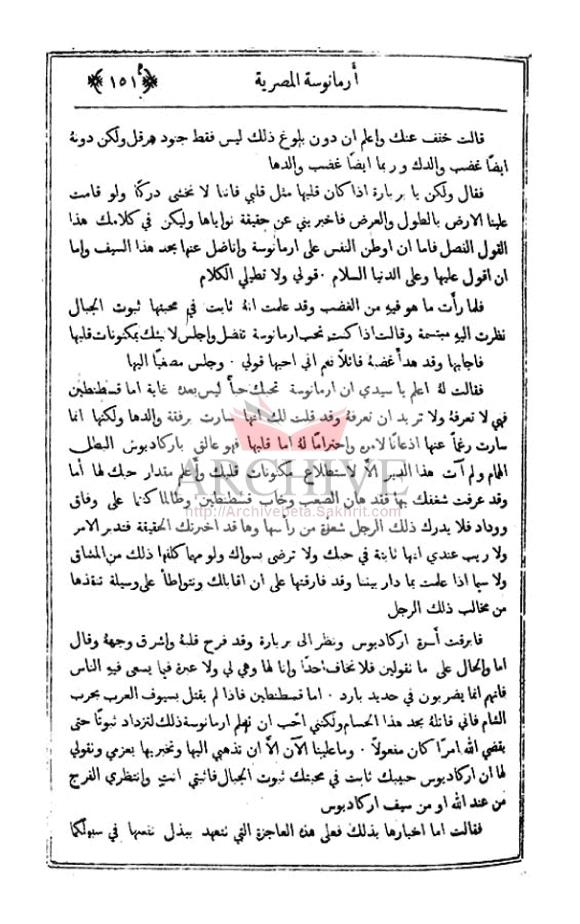 أرمانوسة المصرية
﴿ ١٥١ ﴾
قالت خفف عنك واعلم ان دون بلوغ ذلك ليس فقط جنود هرقل ولكن دونه
ايضًا غضب والدك وربما ايضًا غضب والدها
فقال ولكن يا بربارة اذا كان قلبها مثل قلبي فاننا لا نخشى دركًا ولو قامت
علينا الارض بالطول والعرض فاخبريني عن حقيقة نواياها وليكن في كلامك هذا
القول الفصل فاما ان اوطن النفس على ارمانوسة واناضل عنها بحد هذا السيف واما
ان اقول عليها وعلى الدنيا السلام . قولي ولا تطيلي الكلام
فلما رأت ما هو فيه من الغضب وقد علمت انه ثابت في محبتها ثبوت الجبال
نظرت اليه مبتسمة وقالت اذا كنت تحب ارمانوسة تفضل واجلس لابثك بمكنونات قلبها
فاجابها وقد هدأ غضبه قائلاً نعم اني احبها قولي . وجلس مصغيًا اليها
فقالت له اعلم يا سيدي ان ارمانوسة تحبك حبًا ليس بعده غاية اما قسطنطين
فهي لا تعرفه ولا تريد ان تعرفه وقد قلت لك انها سارت برفقة والدها ولكنها انما
سارت رغمًا عنها اذعانًا لامره واحترامًا له اما قلبها فهو عالق باركاديوس البطل
الهمام ولم آت هذا الدير الا لاستطلاع مكنونات قلبك واعلم مقدار حبك لها أما
وقد عرفت شغفك بها فقد هان الصعب وخاب قسطنطين وطالما كنتما على وفاق
ووداد فلا يدرك ذلك الرجل شعرة من رأسها وها قد اخبرتك الحقيقة فتدبر الامر
ولا ريب عندي انها ثابتة في حبك ولا ترضى بسواك ولو مهما كلفها ذلك من المشاق
ولا سيما اذا علمت بما دار بيننا وقد فارقتها على ان اقابلك ونتواطأ على وسيلة تنقذها
من مخالب ذلك الرجل
فابرقت أسرة اركاديوس ونظر الى بربارة وقد فرح قلبه واشرق وجهه وقال
اما والحال على ما تقولين فلا نخاف احدًا وانا لها وهي لي ولا عبرة فيما يسعى فيه الناس
فانهم انما يضربون في حديد بارد . اما قسطنطين فاذا لم يقتل بسيوف العرب بحرب
الشام فاني قاتله بحد هذا الحسام ولكني احب ان تعلم ارمانوسة ذلك لتزداد ثبوتًا حتى
يقضي الله امرًا كان مفعولًا . وما علينا الآن الا ان تذهبي اليها وتخبريها بعزمي وتقولي
لها ان اركاديوس حبيبك ثابت في محبتك ثبوت الجبال فاثبتي انت وانتظري الفرج
من عند الله او من سيف اركاديوس
فقالت اما اخبارها بذلك فعلى هذه العاجزة التي تتعهد ببذل نفسها في سبيلكما
ARCHIVE
http://Archivebeta.Sakhrit.com